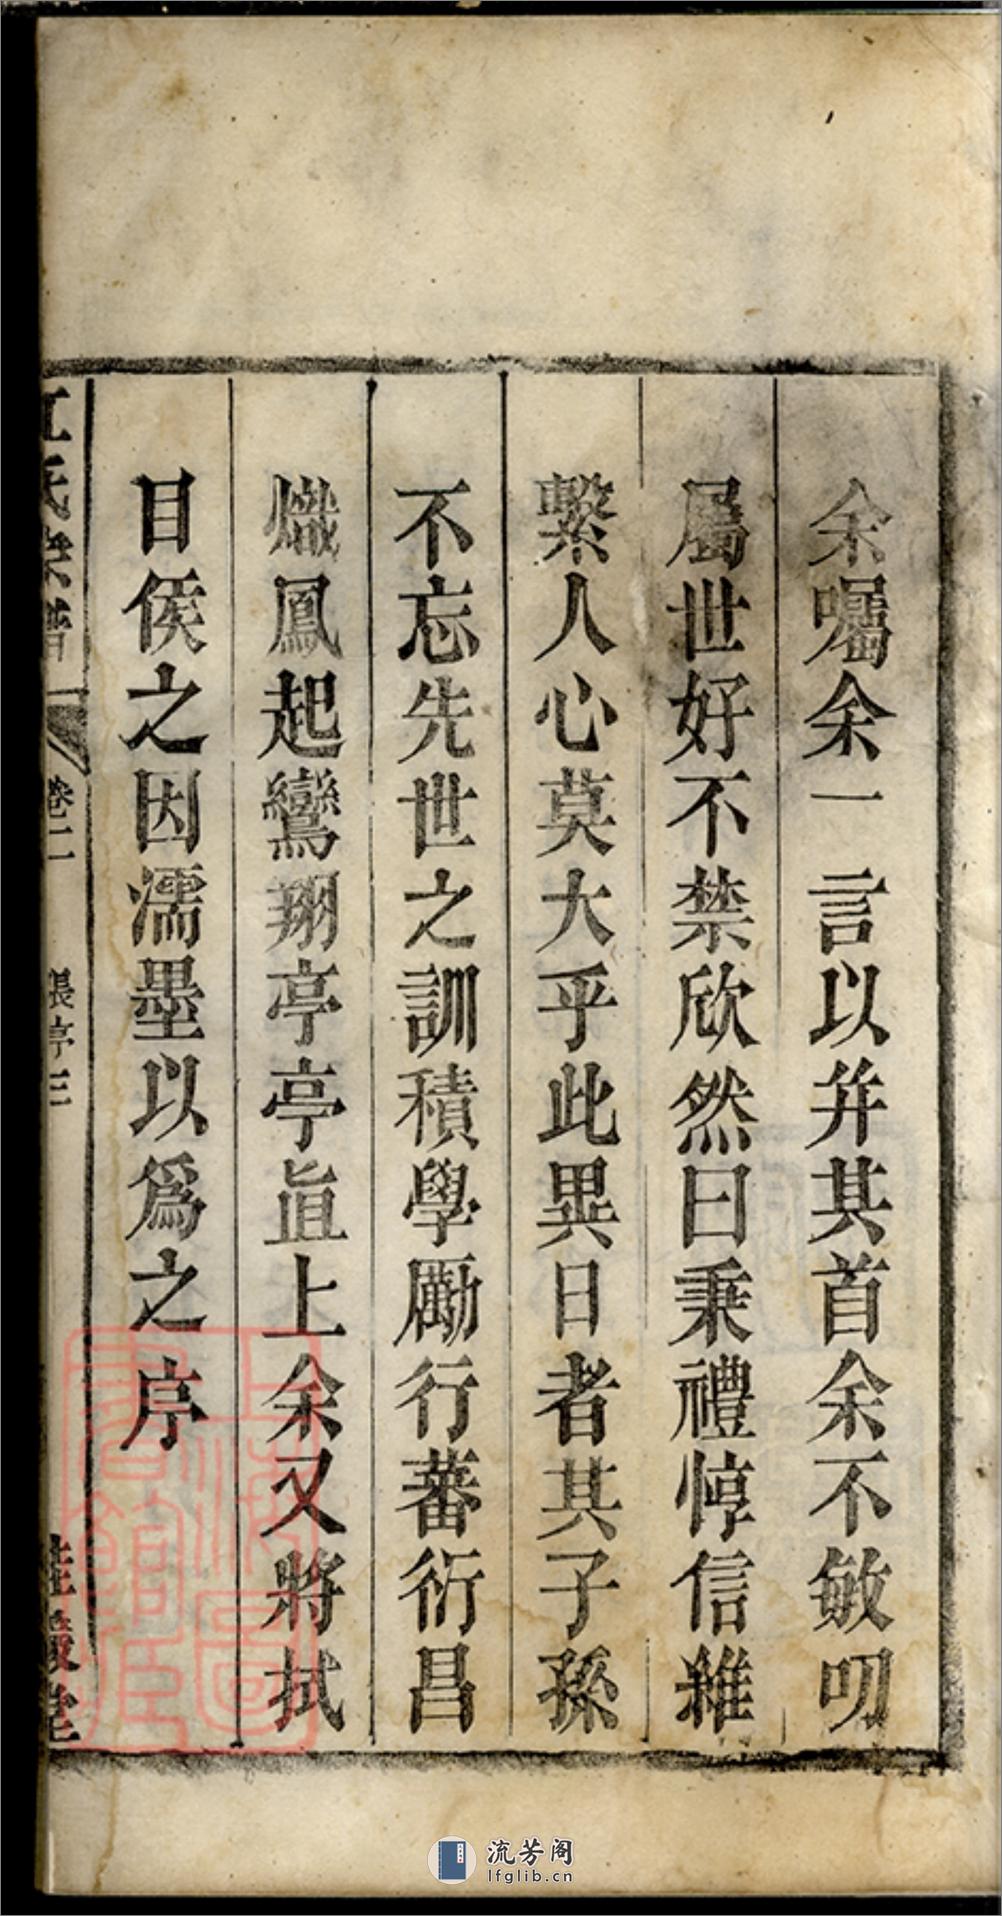 余囑余一言以弁其首余不敏叨
屬世好不禁欣然曰秉禮惇信維
繫人心莫大乎此異日者其子孫
不忘先世之訓積學勵行蕃衍昌
熾鳳起鸞翔亭亭直上余又將拭
目俟之因濡墨以爲之序
江氏宗譜
卷二
張序三
上海圖書館藏
流芳阁
lfglib.cn